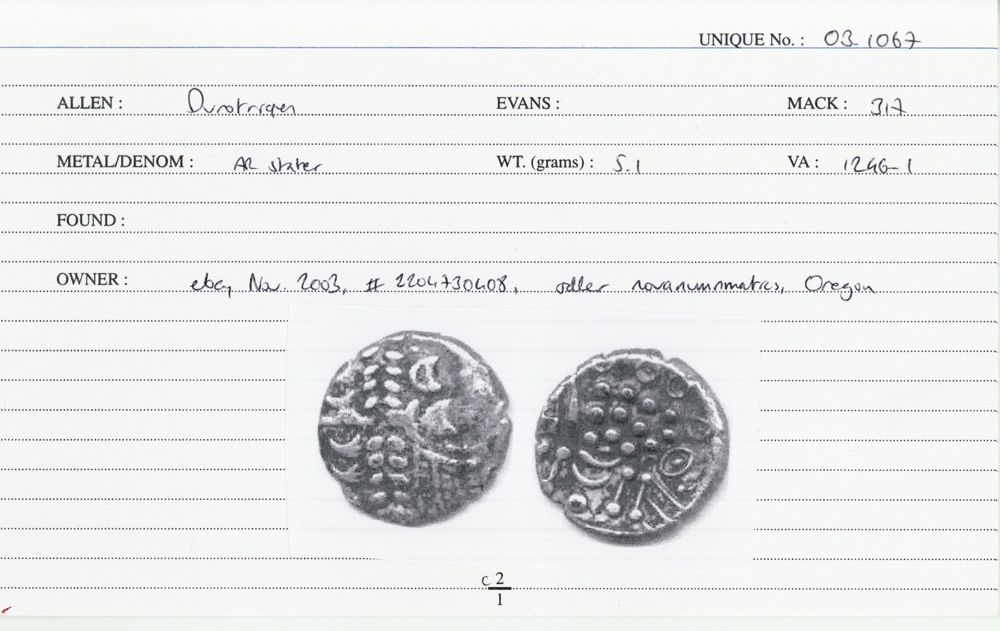 UNIQUE No. : 03.1067
ALLEN : Durotriges EVANS : MACK : 317
METAL/DENOM : AR stater WT. (grams) : 5.1 VA : 1246-1
FOUND :
OWNER : ebay Nov. 2003, # 2204730408, seller novanummatics, Oregon
c 2
1